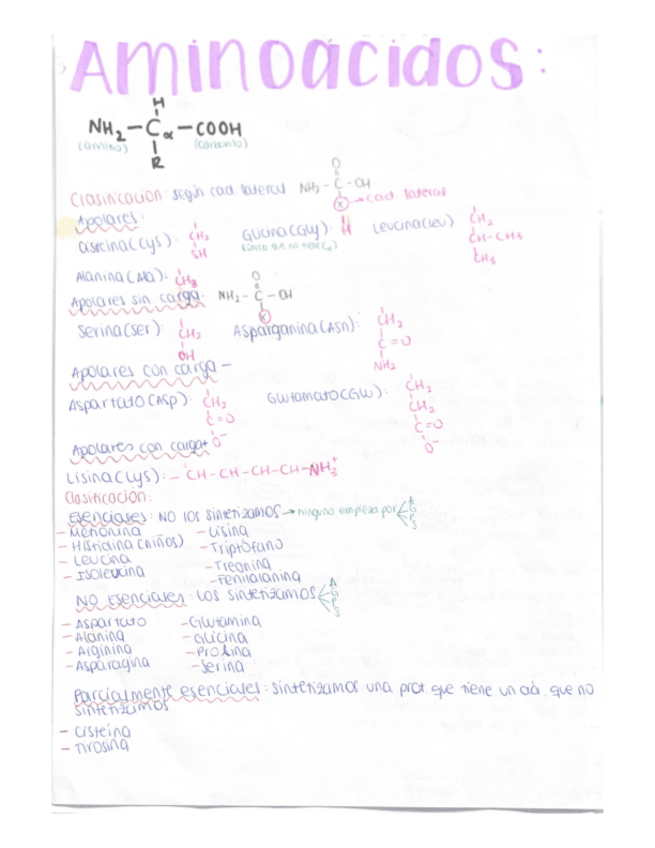 Aminoácidos:
H
NH2 - Cα - COOH
(amino) (carboxilo)
R
Clasificación: según cad. lateral NH2 - C - OH
O
R → cad. lateral
Apolares:
cisteina (Cys): CH2 SH Glicina (Gly): H Leucina (Leu) CH2 CH-CH3 CH3
(único que no tiene Cα)
Alanina (Ala): CH3
Apolares sin carga: NH2 - C - OH
O
Serina (Ser): CH2 OH Asparganina (Asn): CH2 C=O NH2
Apolares con carga -
Aspartato (Asp): CH2 C=O O- Glutamato (Glu): CH2 CH2 C=O O-
Apolares con carga+
Lisina (Lys): - CH-CH-CH-CH-NH3+
Clasificación:
Esenciales: NO los sintetizamos → ninguno empieza por A G P S
- Metionina - Lisina
- Histidina (niños) - Triptófano
- Leucina - Treonina
- Isoleucina - Fenilalanina
No esenciales: Los sintetizamos A G P S
- Aspartato - Glutamina
- Alanina - Glicina
- Arginina - Prolina
- Asparagina - Serina
Parcialmente esenciales: sintetizamos una prot. que tiene un aá. que no
sintetizamos
- Cisteína
- Tirosina